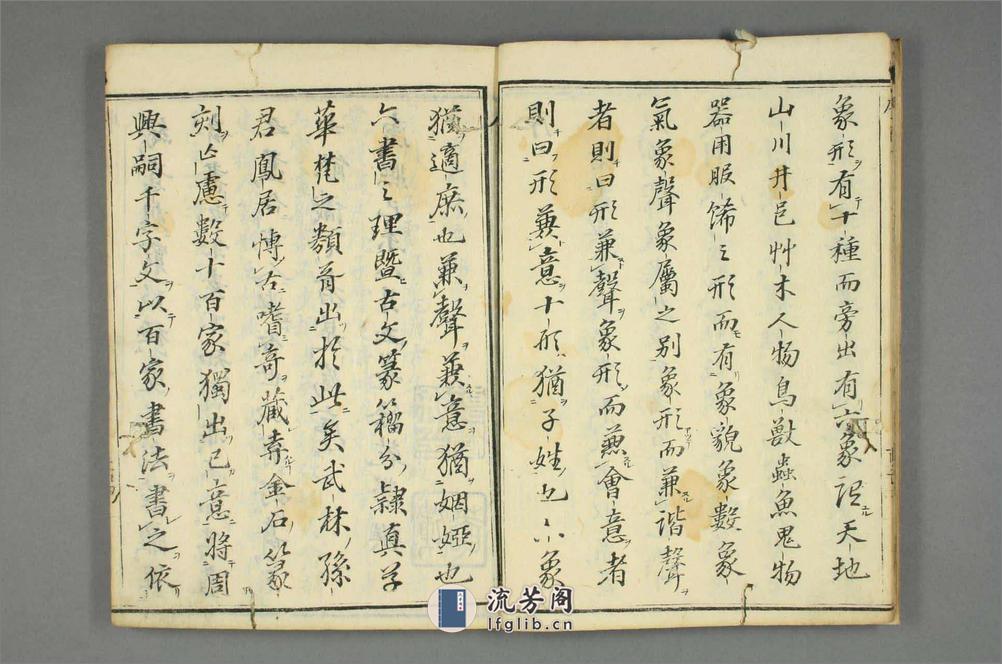 象形有十種而旁出有六象從天地
山川井邑艸木人物鳥獸蟲魚鬼物
器用服飾之形而有象貌象數象
氣象聲象屬之別象形而兼諧聲
者則曰形兼聲象形而兼會意者
則曰形兼意十形猶子姓也六象
猶適庶也兼聲兼意猶姻婭也
六書之理暨古文篆籀分隸真草
華梵之類胥出於此矣武林孫
君鳳居慱古嗜奇藏弆金石篆
刻亡慮數十百家獨出己意將周
興嗣千字文以百家書法書之依
流芳阁
lfglib.cn